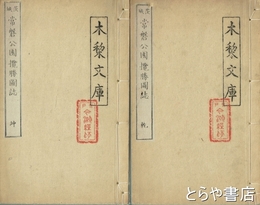 木黎文庫
常磐公園攬勝圖誌 乾
木黎文庫
常磐公園攬勝圖誌 坤
とらや書店